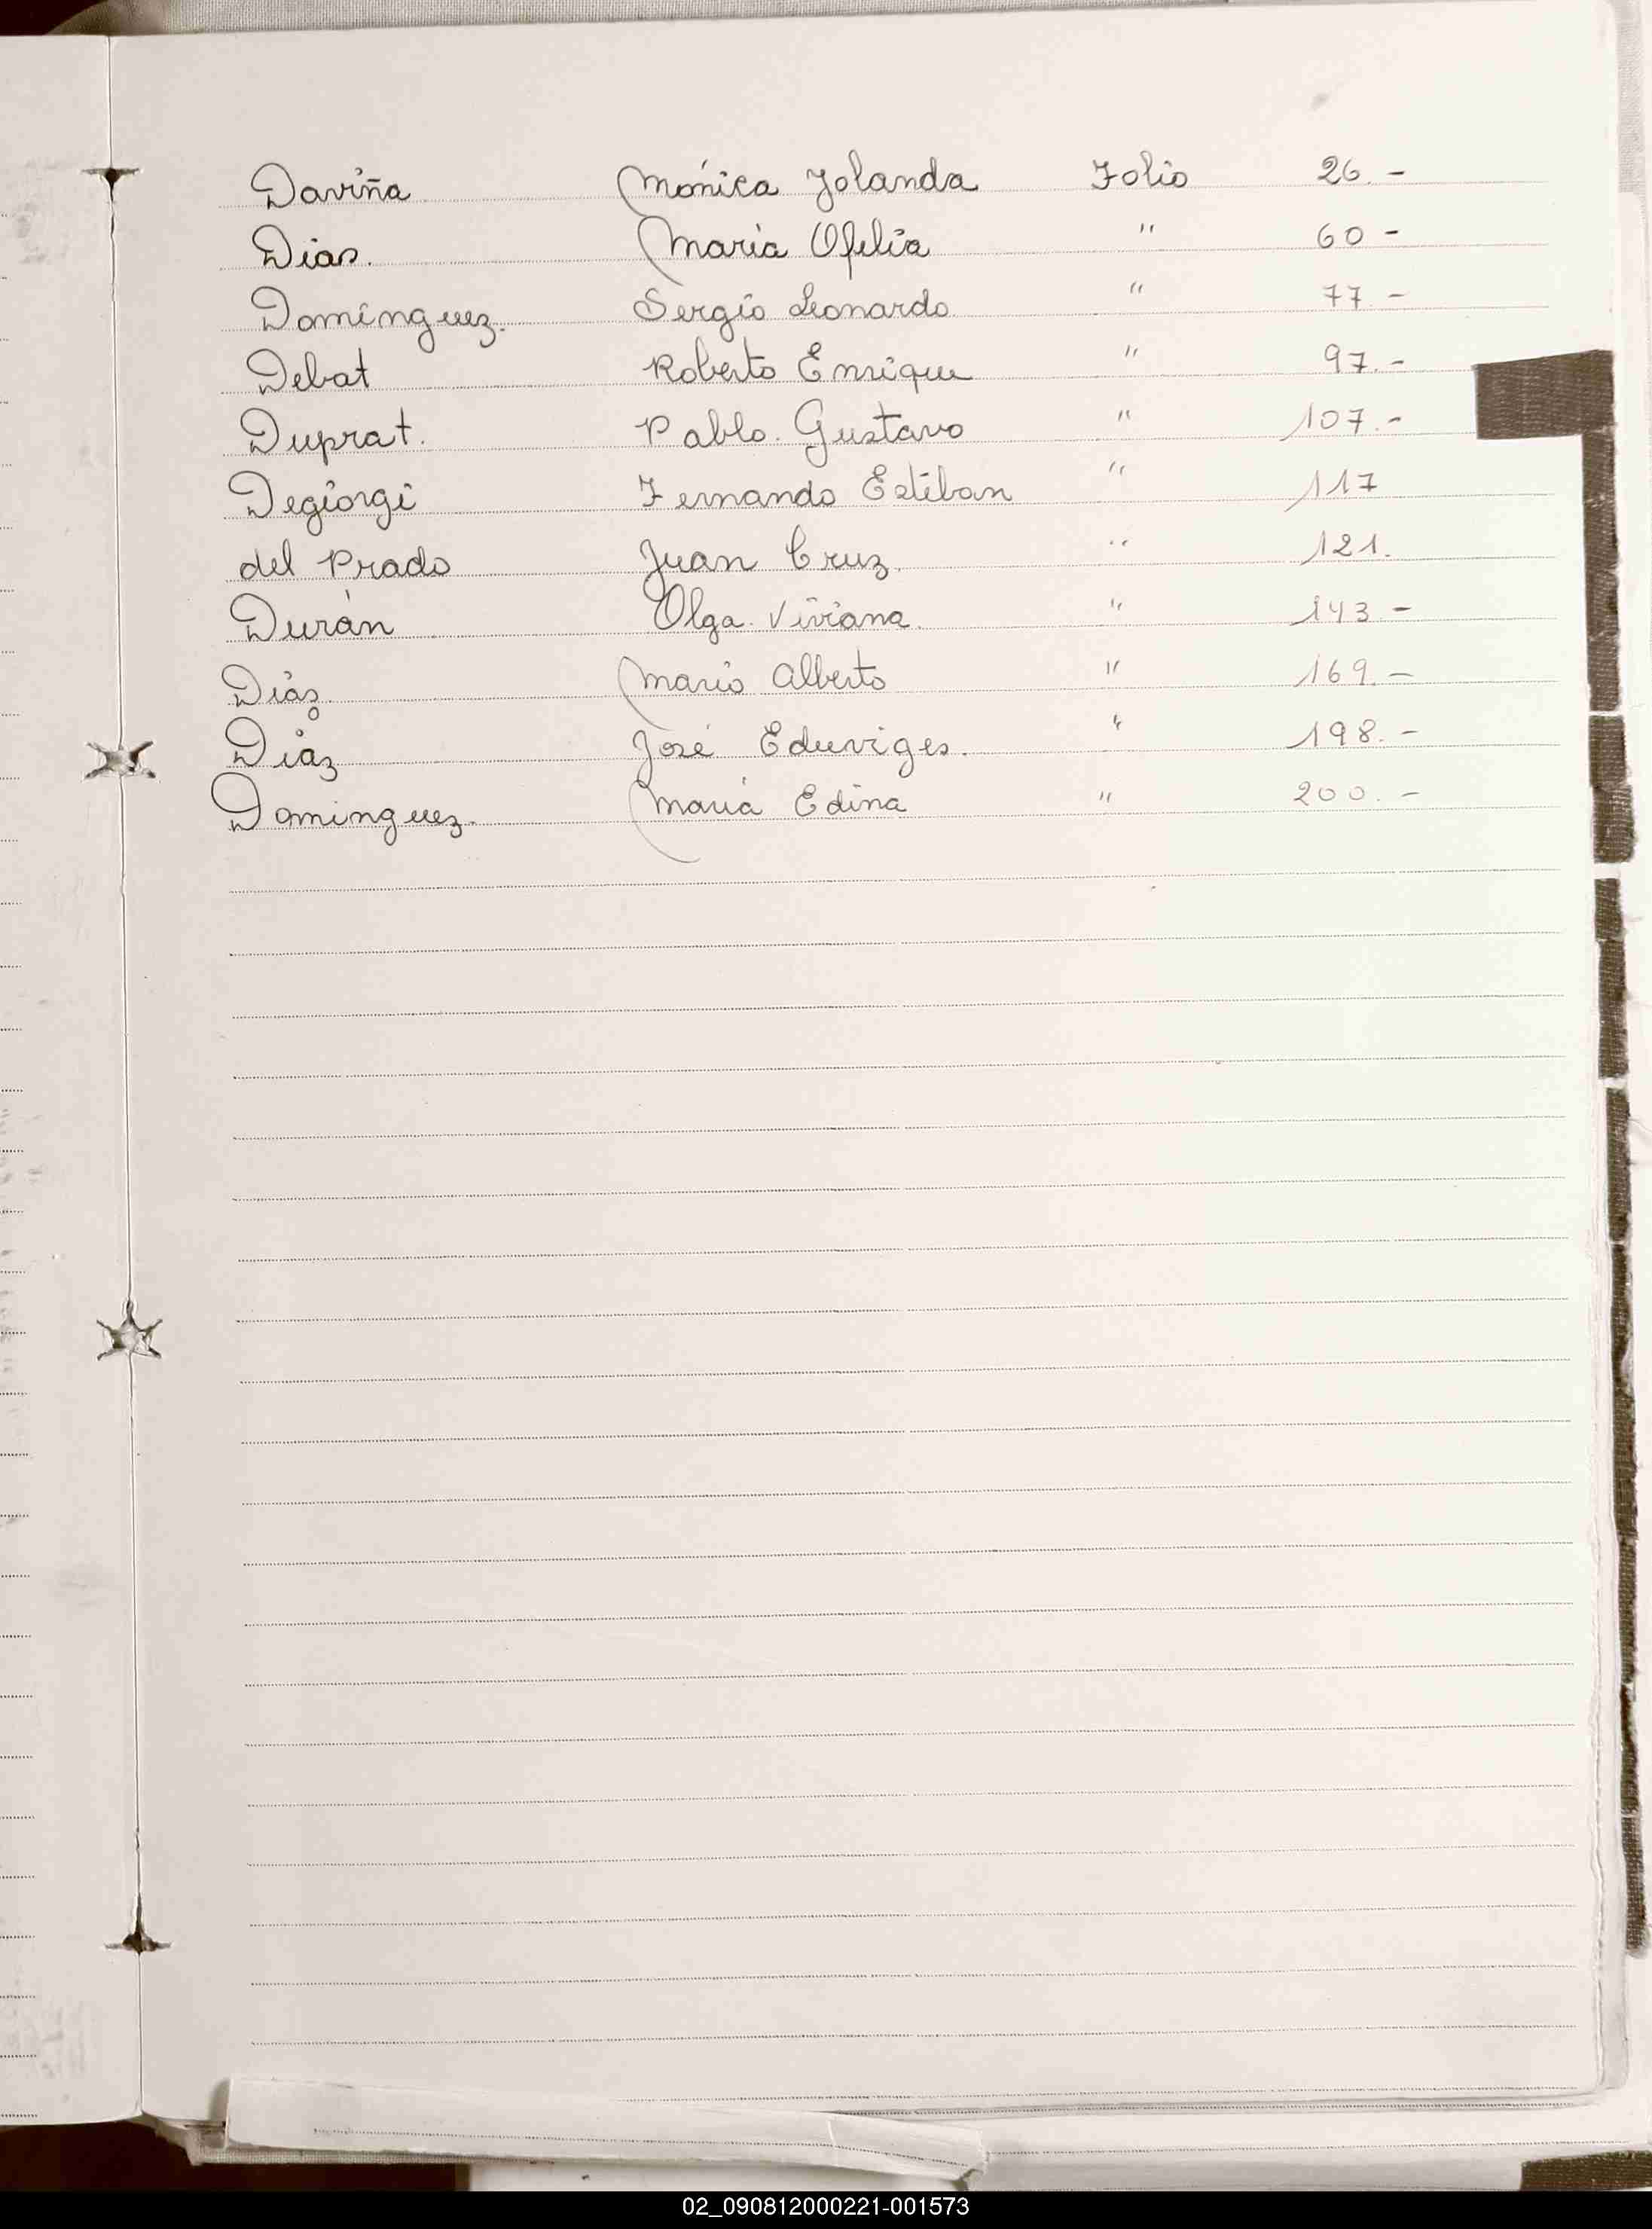 Daviña Mónica Yolanda Folio 26.-
Dias. María Ofelia " 60-
Domínguez. Sergio Leonardo " 77-
Debat Roberto Enrique " 97.-
Duprat. Pablo. Gustavo " 107.-
Degiorgi Fernando Esteban " 117
del Prado Juan Cruz. " 121.
Durán Olga Viviana. " 143.-
Diaz. Mario Alberto " 169.-
Diaz José Eduviges. " 198.-
Dominguez. María Edina " 200.-
02_090812000221-001573